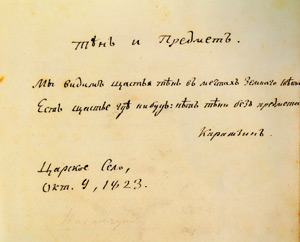 Тѣнь и Предметъ.
Мы видимъ щастья тѣнь въ мечтахъ земнаго свѣта
Есть щастье гдѣ нибудь: нѣтъ тѣни безъ предмета
Карамзинъ.
Царское Село,
Окт. 9, 1823.